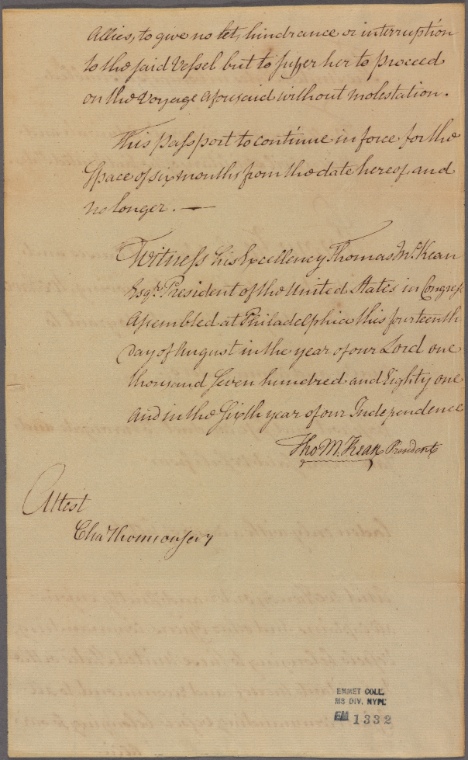 Allies, to give no let, hindrance or interruption
to the said Vessel but to suffer her to proceed
on the Voyage aforesaid without molestation.
This passport to continue in force for the
Space of six months from the date hereof and
no longer. —
Witness his Excellency Thomas McKean
Esqr. President of the United States in Congress
Assembled at Philadelphia this fourteenth
day of August in the year of our Lord one
thousand Seven hundred and Eighty one
and in the Sixth year of our Independence
Tho M:Kean President
Attest
Cha Thomson Secy
EMMET COLL.
MS DIV. NYPL
EM 1332